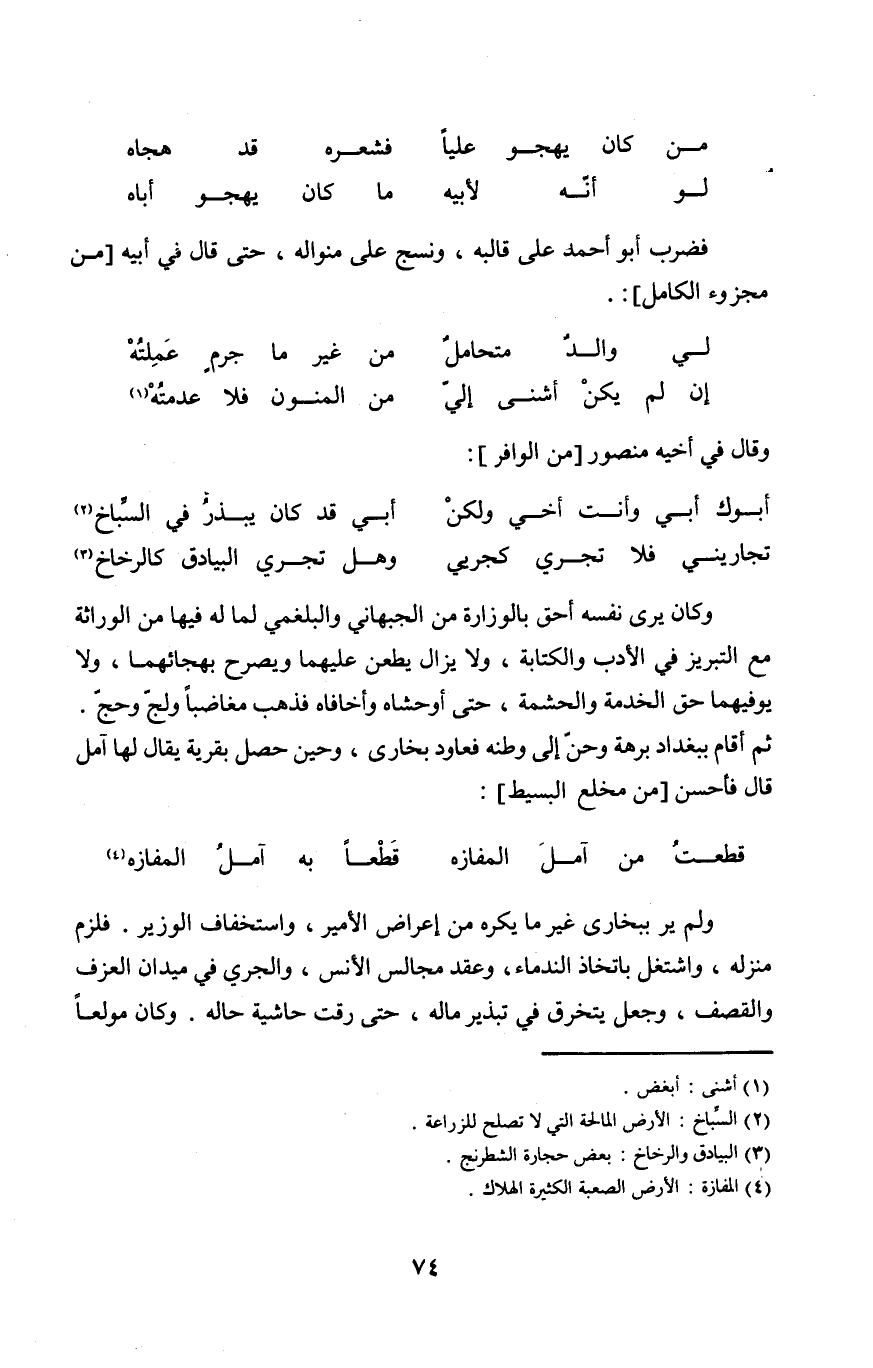 مـن كان يهجـو علياً فشعـره قد هجاه
لـو أنّـه لأبيه ما كان يهجـو أباه
فضرب أبو أحمد على قالبه ، ونسج على منواله ، حتى قال في أبيه [مـن
مجزوء الكامل] : .
لـي والـدٌ متحاملٌ من غير ما جرمٍ عَمِلتُهْ
إن لم يكنْ أشنـى إليّ من المنـون فلا عدمتُهْ(١)
وقال في أخيه منصور [من الوافر ] :
أبـوك أبـي وأنـت أخـي ولكنْ أبـي قد كان يبـذرُ في السِّباخ(٢)
تجارينـي فلا تجـري كجريي وهـل تجـري البيادق كالرخاخ(٣)
وكان يرى نفسه أحق بالوزارة من الجبهاني والبلغمي لما له فيها من الوراثة
مع التبريز في الأدب والكتابة ، ولا يزال يطعن عليهما ويصرح بهجائهمـا ، ولا
يوفيهما حق الخدمة والحشمة ، حتى أوحشاه وأخافاه فذهب مغاضباً ولجّ وحجّ .
ثم أقام ببغداد برهة وحنّ إلى وطنه فعاود بخارى ، وحين حصل بقرية يقال لها آمل
قال فأحسن [من مخلع البسيط] :
قطعـتُ من آمـلَ المفازه قَطْعـاً به آمـلُ المفازه(٤)
ولم ير ببخارى غير ما يكره من إعراض الأمير ، واستخفاف الوزير . فلزم
منزله ، واشتغل باتخاذ الندماء، وعقد مجالس الأنس ، والجري في ميدان العزف
والقصف ، وجعل يتخرق في تبذير ماله ، حتى رقت حاشية حاله . وكان مولعـاً
(١) أشنى : أبغض .
(٢) السِّباخ : الأرض المالحة التي لا تصلح للزراعة .
(٣) البيادق والرخاخ : بعض حجارة الشطرنج .
(٤) المفازة : الأرض الصعبة الكثيرة الهلاك .
٧٤